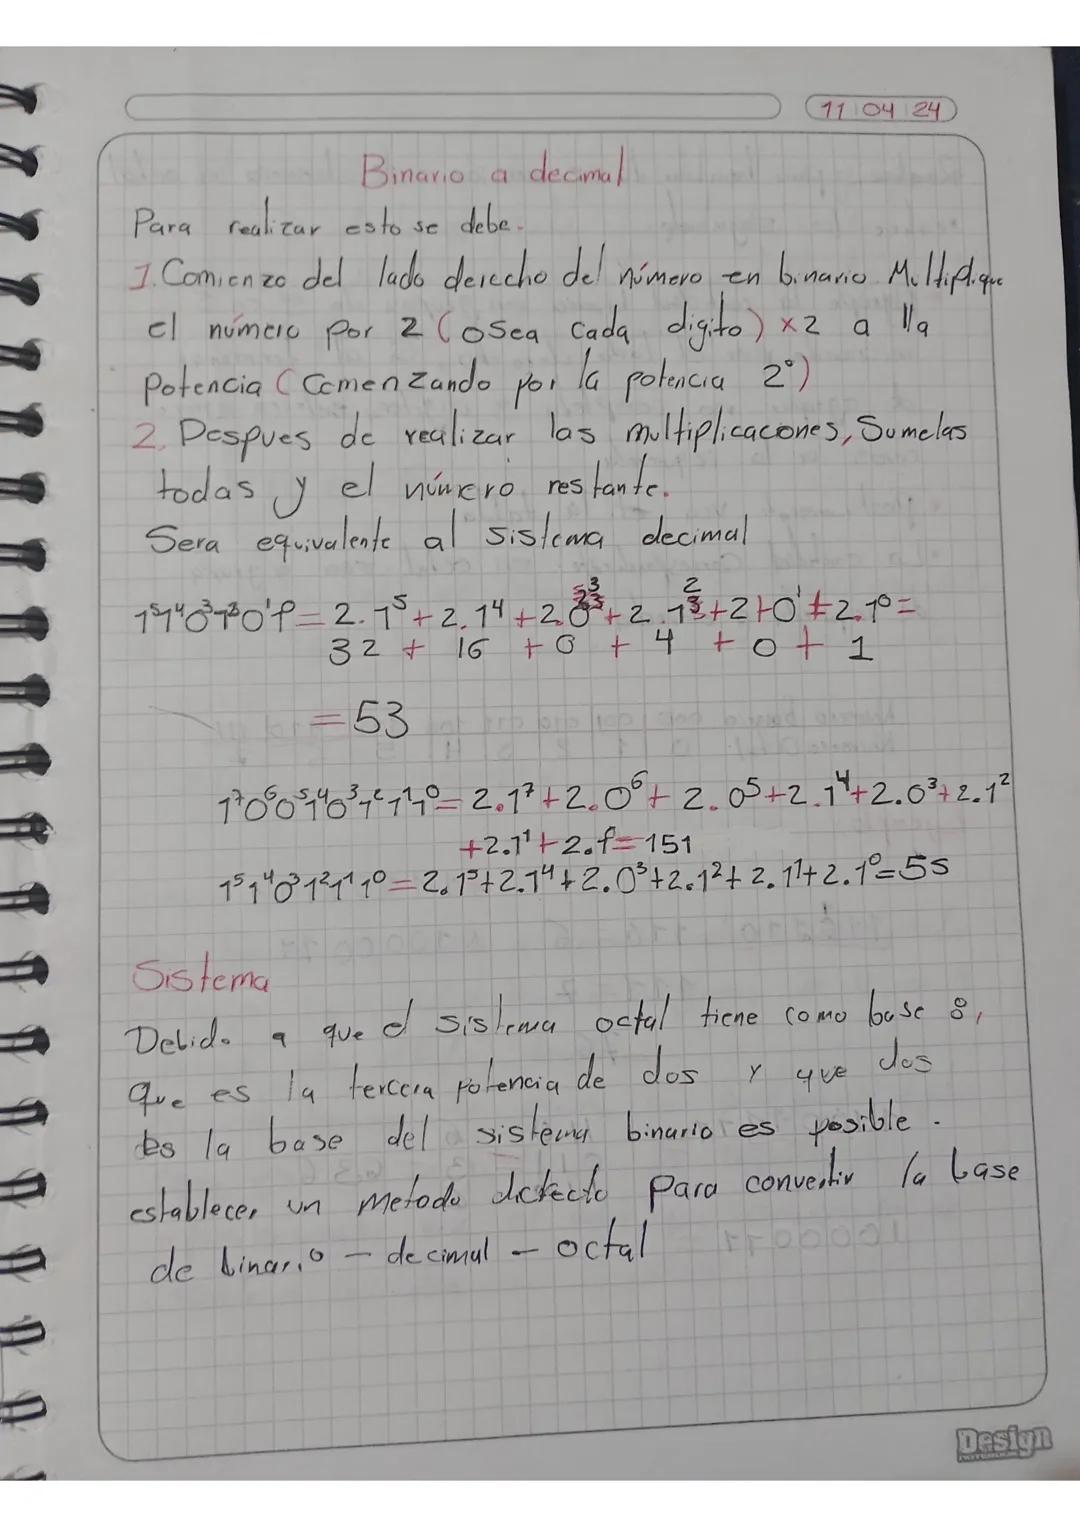 11 04 24
Binario a decimal
Para realizar esto se debe.
1. Comienzo del lado derecho del número en binario. Multiplique
el número por 2 (osea cada digito) x2 a lla
Potencia (Comenzando por la potencia 2°)
2. Despues de realizar las multiplicaciones, Sumelas
todas y el número restante.
Sera equivalente al sistema decimal
= 2.1⁵+2.1⁴+2.0³+2.1²+2+0¹+2.1⁰=
32 + 16 + 0 + 4 + 0 + 1
= 53
1⁷0⁶0⁵1⁴0³1²1¹1⁰= 2.1⁷+2.0⁶+ 2.0⁵+2.1⁴+2.0³+2.1²
+2.1¹+2.1⁰=151
1⁵1⁴0³1²1¹1⁰=2.1⁵+2.1⁴+2.0³+2.1²+2.1¹+2.1⁰=55
Sistema
Debido a que el sistema octal tiene como base 8,
que es la tercera potencia de dos y que dos
es la base del sistema binario es posible.
establecer un metodo para convertir la base
de binario - decimal - octal
Design